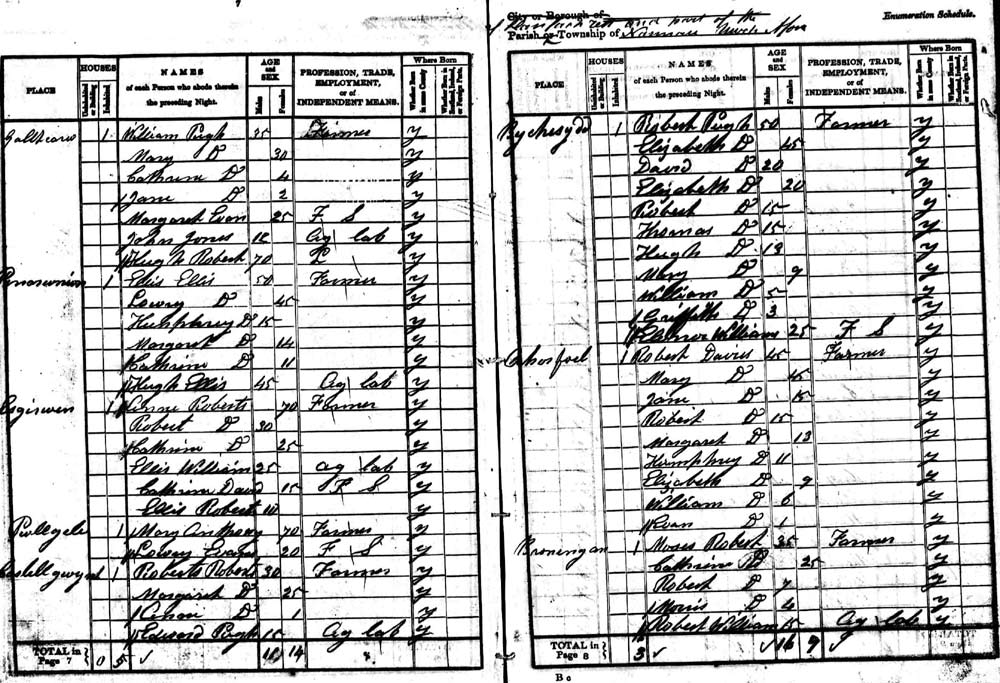 PLACE HOUSES Uninhabited or Building Inhabited NAMES of each Person who abode therein the preceding Night. AGE and SEX Males Females PROFESSION, TRADE, EMPLOYMENT, or of INDEPENDENT MEANS. Where Born Whether Born in same County Whether Born in Scotland, Ireland, or Foreign Parts.
1 William Pugh 35 Farmer y
Mary D 30 y
Cathrine D 4 y
Jane D 2 y
Margaret Evan 25 F S y
John Jones 12 Ag lab y
Hugh Robert 70 y
1 Ellis Ellis 50 Farmer y
Lowry D 45 y
Humphrey D 15 y
Margaret D 14 y
Cathrine D 11 y
Hugh Ellis 45 Ag lab y
Esgirwen 1 Anne Roberts 70 Farmer y
Robert D 30 y
Cathrine D 25 y
Ellis William 25 Ag lab y
Cathrine David 15 F S y
Ellis Robert 10 y
Pwllgele 1 Mary Anthony 70 Farmer y
Lowry Evans 20 F S y
Castell gwynt 1 Roberts Robert 30 Farmer y
Margaret D 25 y
D 1 y
Edward Pugh 15 Ag lab y
TOTAL in Page 7 0 5 11 14
City or Borough of
and part of the
Enumeration Schedule.
Parish or Township of
PLACE HOUSES Uninhabited or Building Inhabited NAMES of each Person who abode therein the preceding Night. AGE and SEX Males Females PROFESSION, TRADE, EMPLOYMENT, or of INDEPENDENT MEANS. Where Born Whether Born in same County Whether Born in Scotland, Ireland, or Foreign Parts.
Bychesydd 1 Robert Pugh 50 Farmer y
Elizabeth D 45 y
David D 20 y
Elizabeth D 20 y
Robert D 15 y
Thomas D 15 y
Hugh D 13 y
Mary D 9 y
William D 5 y
Griffith D 3 y
Elinor William 25 F S y
1 Robert Davies 45 Farmer y
Mary D 45 y
Jane D 15 y
Robert D 15 y
Margaret D 13 y
Humphrey D 11 y
Elizabeth D 9 y
William D 6 y
Evan D 1 y
Broningan 1 Moses Robert 35 Farmer y
Cathrine D 25 y
Robert D 7 y
Morris D 4 y
Robert William 15 Ag lab y
TOTAL in Page 8 3 16 9
B c